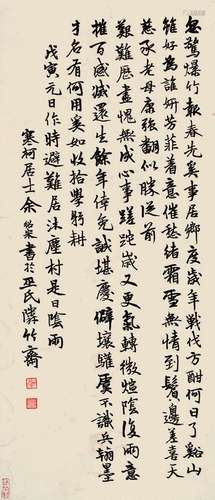 忽驚爆竹報春先奚事居鄉度歲年戰伐方酣何日了谿山
雖好為誰妍芳菲着意催愁緒霜雪無情到鬢邊差喜天
慈承老母康強翻似勝從前
艱難歷盡愧無成心事蹉跎歲又更氣轉微煊陰復雨意
摧百感滅還生餘年倖免誠堪慶僻壤驩虞不識兵翰墨
才名有何用奚如收拾學躬耕
戊寅元日作時避難居沐塵村是日陰雨
寒柯居士余書於巫氏隣竹齋